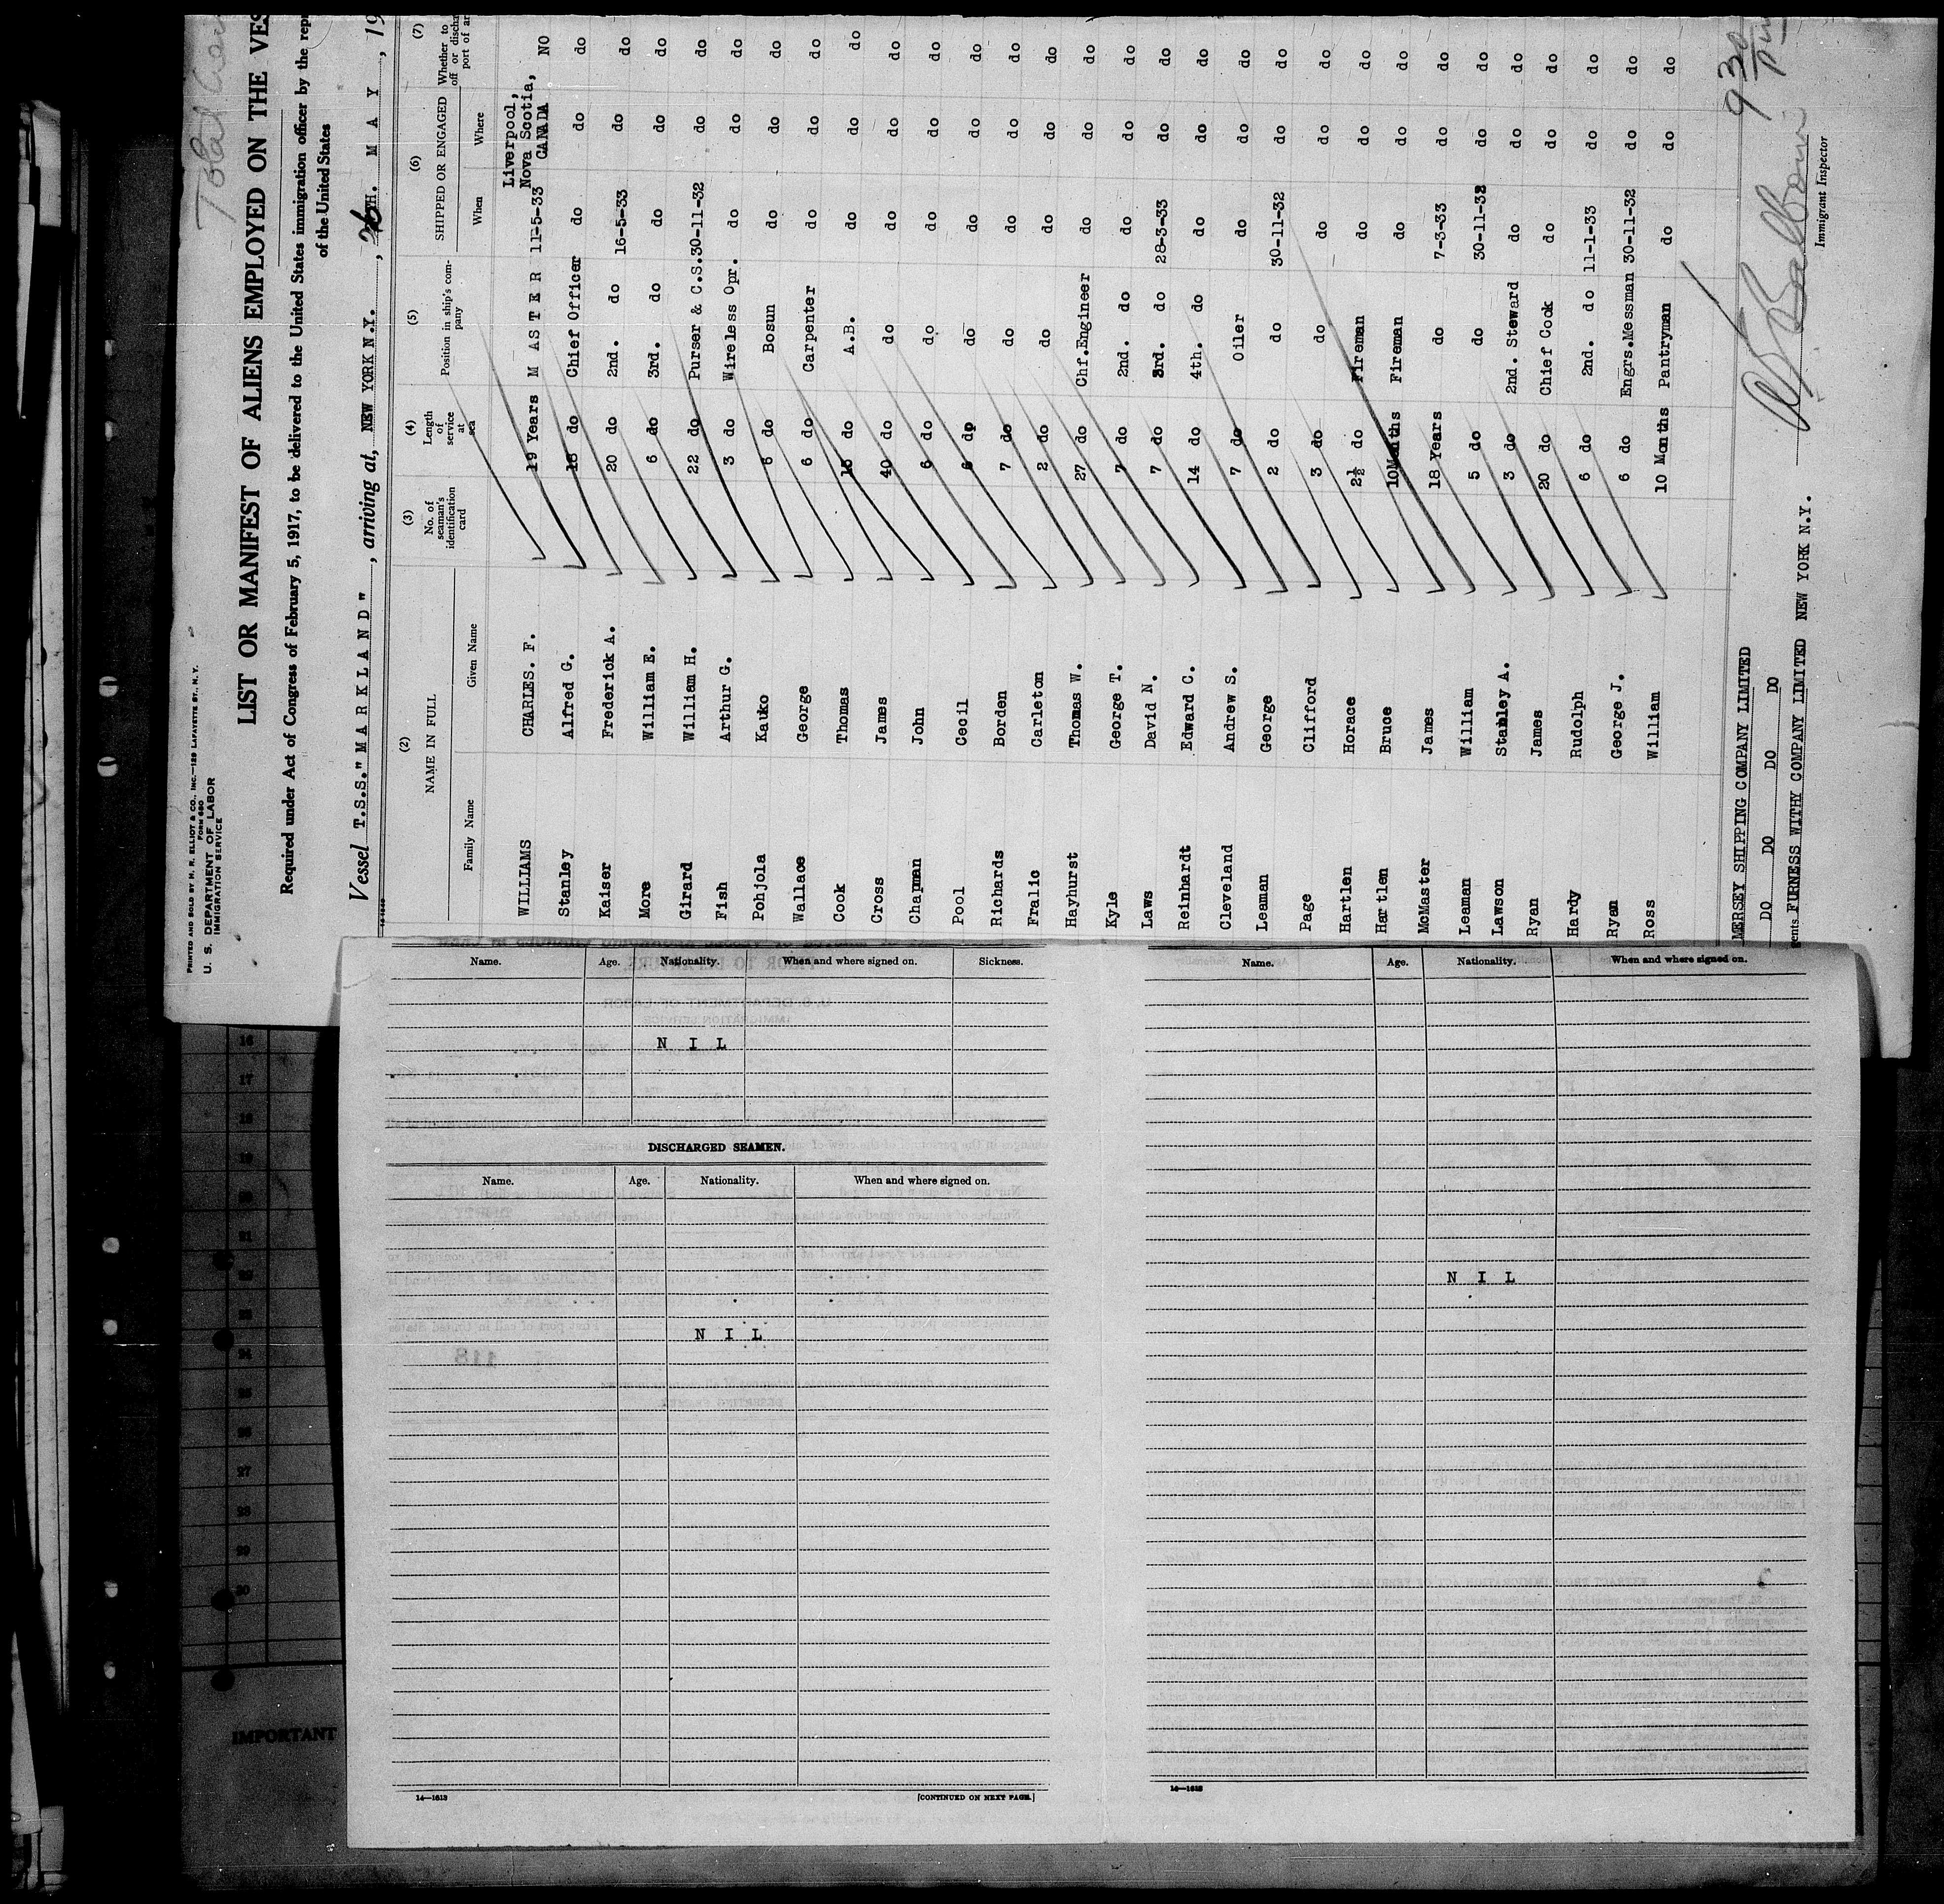 PRINTED AND SOLD BY M. R. ELLIOT & CO., INC.—129 LAFAYETTE ST., N.Y.
FORM 680
U. S. DEPARTMENT OF LABOR
IMMIGRATION SERVICE
Total
LIST OR MANIFEST OF ALIENS EMPLOYED ON THE VES
Required under Act of Congress of February 5, 1917, to be delivered to the United States immigration officer by the repr
of the United States
Vessel T.S.S."MARKLAND", arriving at, NEW YORK N.Y., 26TH. MAY, 19
(2) (3) (4) (5) (6) (7)
NAME IN FULL No. of seaman's identification card Length of service at sea Position in ship's company SHIPPED OR ENGAGED Whether to off or disch port of ar
Family Name Given Name When Where
Liverpool,
Nova Scotia,
WILLIAMS CHARLES. F. 19 Years MASTER 11-5-33 CANADA NO
Stanley Alfred G. 18 do Chief Officer do do do
Kaiser Frederick A. 20 do 2nd. do 16-5-33 do do
More William E. 6 do 3rd. do do do do
Girard William H. 22 do Purser & C.S. 30-11-32 do do
Fish Arthur G. 3 do Wireless Opr. do do do
Pohjola Kauko 6 do Bosun do do do
Wallace George 6 do Carpenter do do do
Cook Thomas 15 do A.B. do do do
Cross James 40 do do do do do
Chapman John 6 do do do do do
Pool Cecil 6 do do do do do
Richards Borden 7 do do do do do
Fralic Carleton 2 do do do do do
Hayhurst Thomas W. 27 do Chf.Engineer do do do
Kyle George T. 7 do 2nd. do do do do
Laws David N. 7 do 3rd. do 28-3-33 do do
Reinhardt Edward C. 14 do 4th. do do do do
Cleveland Andrew S. 7 do Oiler do do do
Leaman George 2 do do 30-11-32 do do
Page Clifford 3 do do do do do
Hartlen Horace 2½ do Fireman do do do
Hartlen Bruce 10Months Fireman do do do
McMaster James 18 Years do 7-3-33 do do
Leaman William 5 do do 30-11-32 do do
Lawson Stanley A. 3 do 2nd. Steward do do do
Ryan James 20 do Chief Cook do do do
Hardy Rudolph 6 do 2nd. do 11-1-33 do do
Ryan George J. 6 do Engrs.Messman 30-11-32 do do
Ross William 10 Months Pantryman do do do
9 30
MERSEY SHIPPING COMPANY LIMITED
DO DO DO DO
gents FURNESS WITHY COMPANY LIMITED NEW YORK N.Y.
Immigrant Inspector
Name. Age. Nationality. When and where signed on. Sickness.
NIL
DISCHARGED SEAMEN.
Name. Age. Nationality. When and where signed on.
NIL
14—1613
[CONTINUED ON NEXT PAGE.]
Name. Age. Nationality. When and where signed on.
NIL
14—1613
16
17
18
19
20
21
22
23
24
25
26
27
28
29
30
IMPORTANT